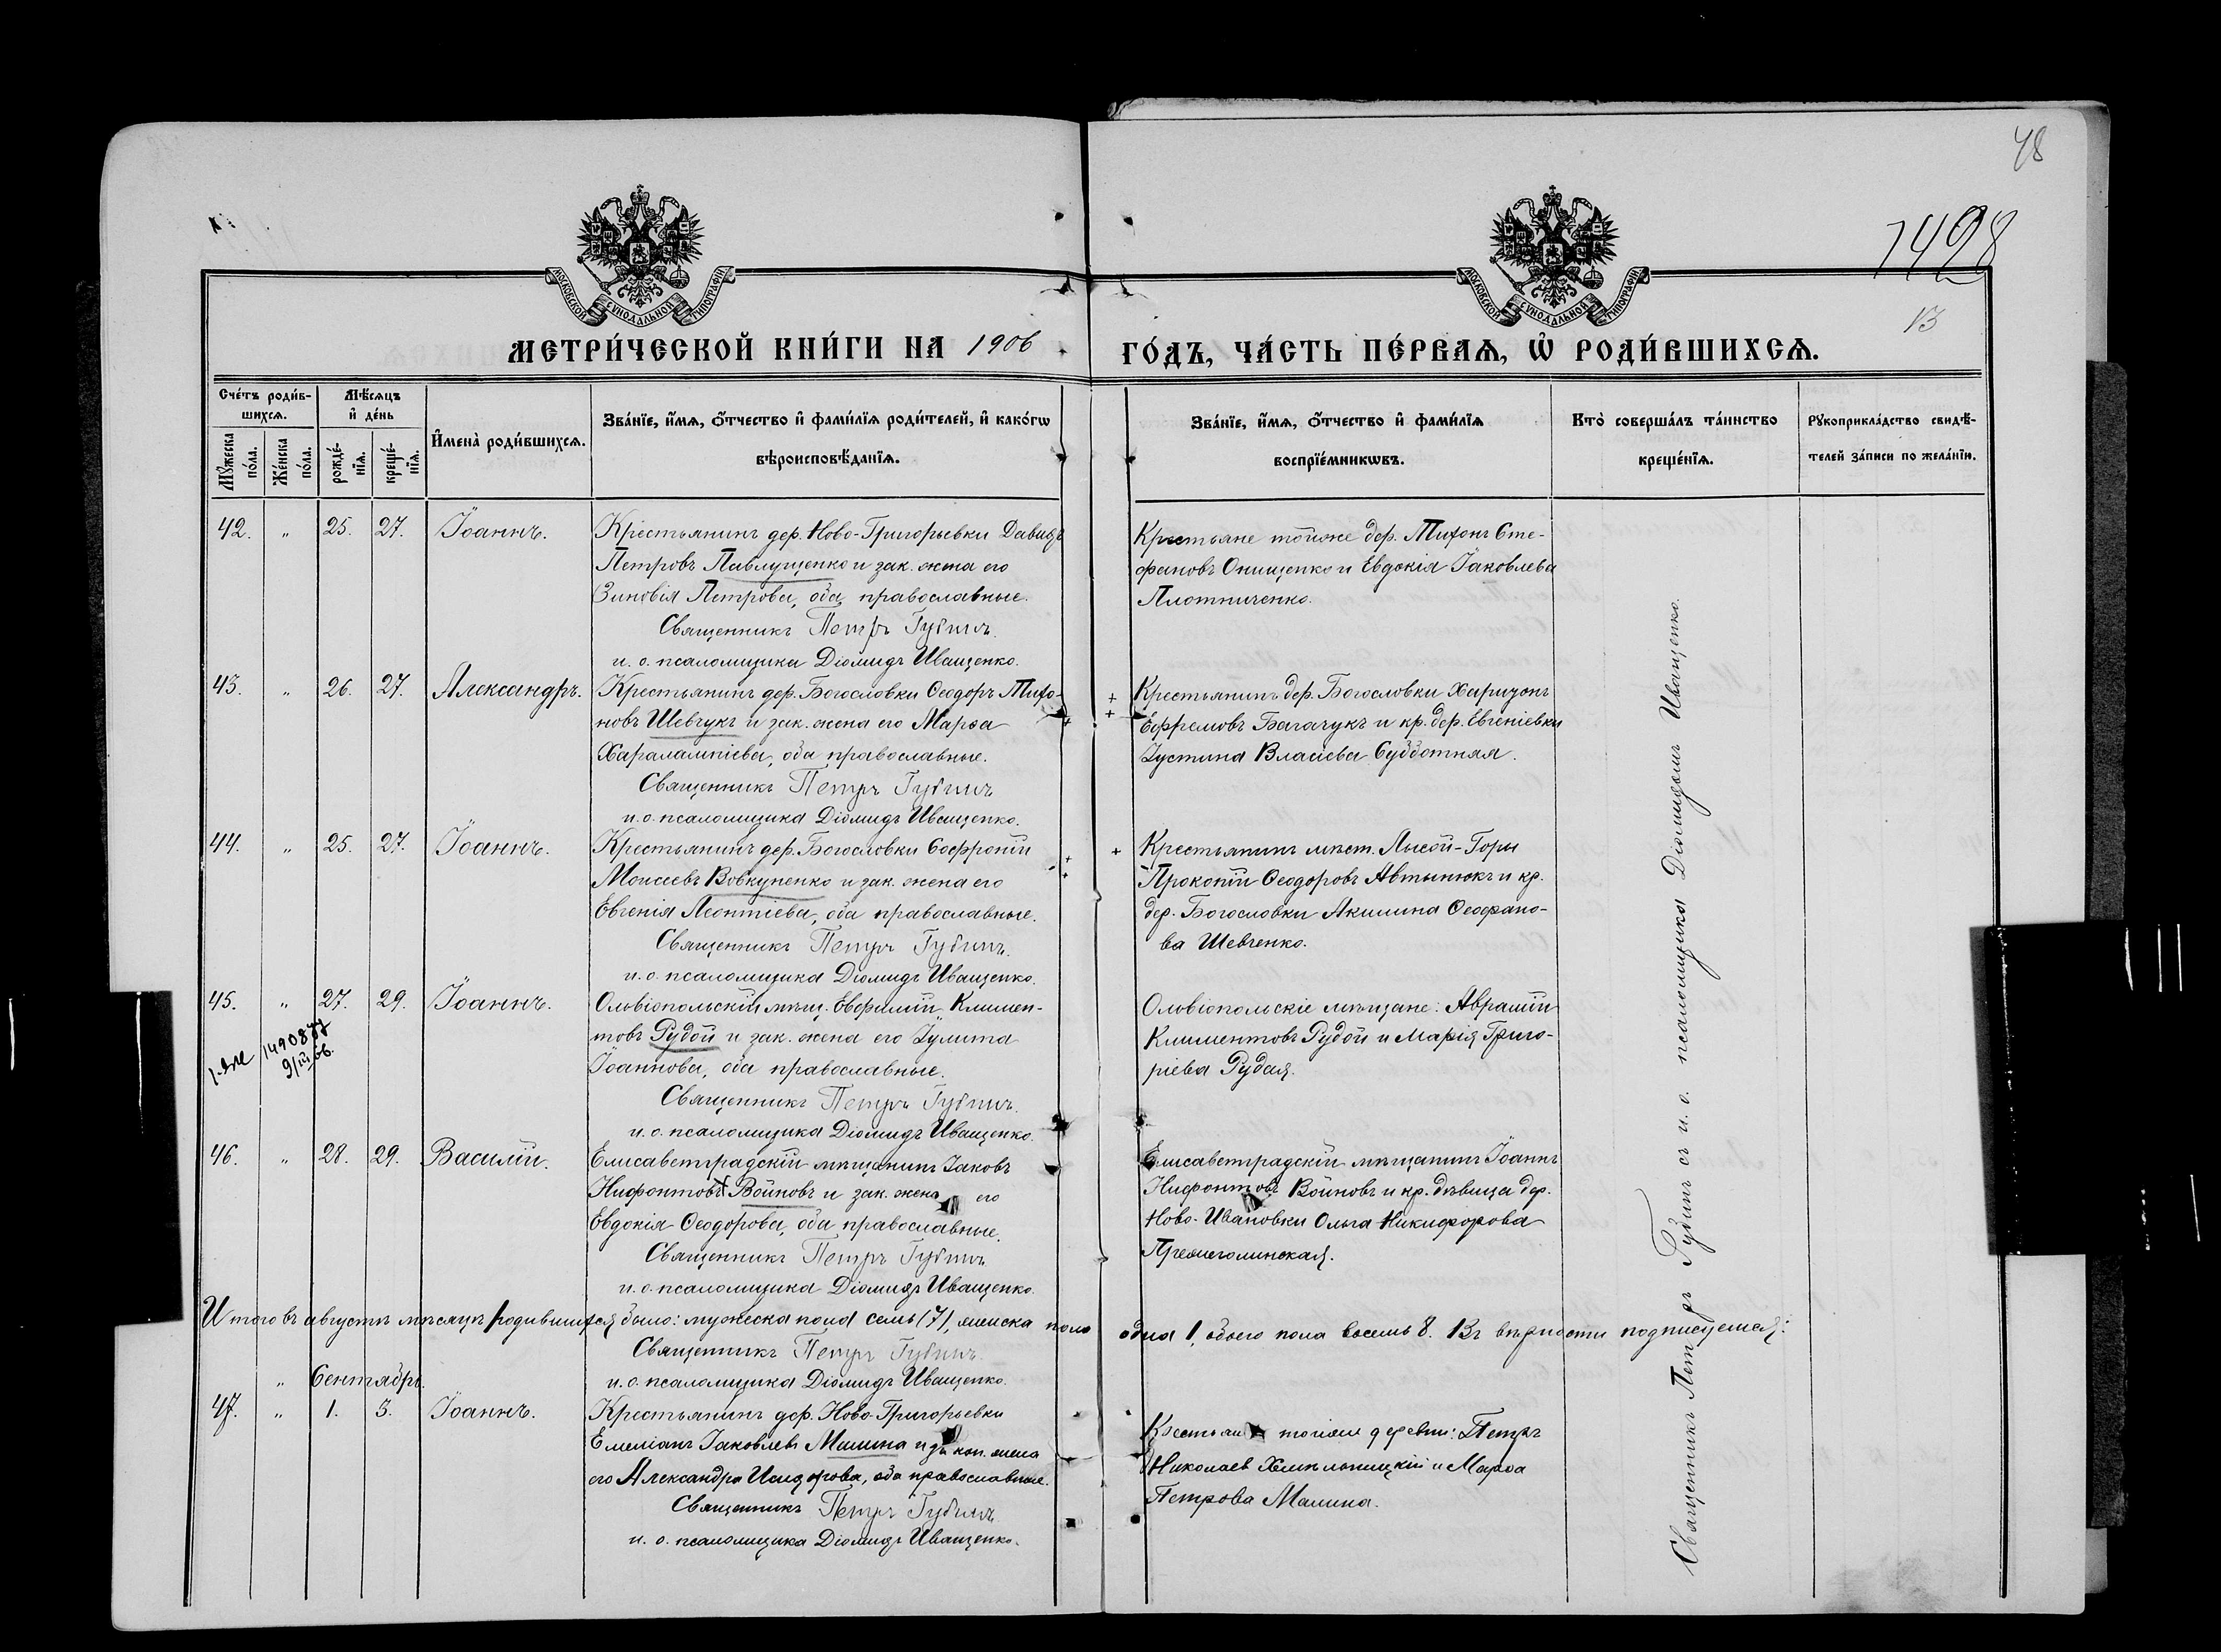 48
1498
13
МОСКОВСКОЙ СѴНОДАЛЬНОЙ ТИПОГРАФІИ
МОСКОВСКОЙ СѴНОДАЛЬНОЙ ТИПОГРАФІИ
МЕТРИ́ЧЕСКОЙ КНИ́ГИ НА 1906
ГО́ДЪ, ЧА́СТЬ ПЕ́РВАѦ, Ѡ҆ РОДИ́ВШИХСѦ.
Сче́тъ роди́в-
шихсѧ.
Мꙋ́жеска по́ла.
Же́нска по́ла.
Мѣ́сѧцъ
и҆ де́нь
рожде́-
нїѧ.
креще́-
нїѧ.
И҆мена̀ роди́вшихсѧ.
Зва́нїе, и҆́мѧ, ѻ҆́тчество и҆ фами́лїѧ роди́телей, и҆ како́гѡ
вѣроисповѣ́данїѧ.
Зва́нїе, и҆́мѧ, ѻ҆́тчество и҆ фами́лїѧ
воспрїе́мникѡвъ.
Кто̀ соверша́лъ та́инство
креще́нїѧ.
Рꙋкоприкла́дство свидѣ́-
телей за́писи по жела́нїю.
42. " 25. 27. Іоаннъ. Крестьянинъ дер. Ново-Григорьевки Давидъ
Петровъ Павлущенко и зак. жена его
Зиновія Петрова, оба православные.
Священникъ Петръ Губинъ.
и. о. псаломщика Діомидъ Иващенко.
Крестьяне тойже дер. Тихонъ Сте-
фановъ Онищенко и Евдокія Іаковлева
Плотниченко.
43. " 26. 27. Александръ. Крестьянинъ дер. Богословки Ѳеодоръ Тихо-
новъ Шевчукъ и зак. жена его Марѳа
Харалампіева, оба православные.
Священникъ Петръ Губинъ
и. о. псаломщика Діомидъ Иващенко.
Крестьянинъ дер. Богословки Харитонъ
Ефремовъ Багачукъ и кр. дер. Евгеніевки
Іустина Власіева Субботняя.
44. " 25. 27. Іоаннъ. Крестьянинъ дер. Богословки Софроній
Моисеевъ Вовкуненко и зак. жена его
Евгенія Леонтіева, оба православные.
Священникъ Петръ Губинъ.
и. о. псаломщика Діомидъ Иващенко.
Крестьянинъ мѣст. Лысой-Горы
Прокопій Ѳеодоровъ Автынюкъ и кр.
дер. Богословки Акилина Ѳеофано-
ва Шевченко.
45. " 27. 29. Іоаннъ. Ольвіопольскій мѣщ. Евфимій Климен-
товъ Рудой и зак. жена его Іулита
Іоаннова, оба православные.
Священникъ Петръ Губинъ.
и. о. псаломщика Діомидъ Иващенко.
Ольвіопольскіе мѣщане: Аврамій
Климентовъ Рудой и Марія Григо-
ріева Рудая.
46. " 28. 29. Василій. Елисаветградскій мѣщанинъ Іаковъ
Нифонтовъ Войновъ и зак. жена его
Евдокія Ѳеодорова, оба православные.
Священникъ Петръ Губинъ
и. о. псаломщика Діомидъ Иващенко.
Елисаветградскій мѣщанинъ Іоаннъ
Нифонтовъ Войновъ и кр. дѣвица дер.
Ново-Ивановки Ольга Никифорова
Итого въ августѣ мѣсяцѣ родившихся было: мужеска пола семь (7), женска пола одна 1, обоего пола восемь 8. Въ вѣрности подписуемся:
Священникъ Петръ Губинъ.
и. о. псаломщика Діомидъ Иващенко.
" Сентябрь.
47. " 1. 3. Іоаннъ. Крестьянинъ дер. Ново-Григорьевки
Емеліанъ Іаковлевъ Малина и закон. жена
его Александра Исидорова, оба православные.
Священникъ Петръ Губинъ
и. о. псаломщика Діомидъ Иващенко.
Крестьяне тойже деревни: Петръ
Николаевъ Хмельницкій и Марѳа
Петрова Малина.
Священникъ Петръ Губинъ съ и. о. псаломщика Діомидомъ Иващенко.